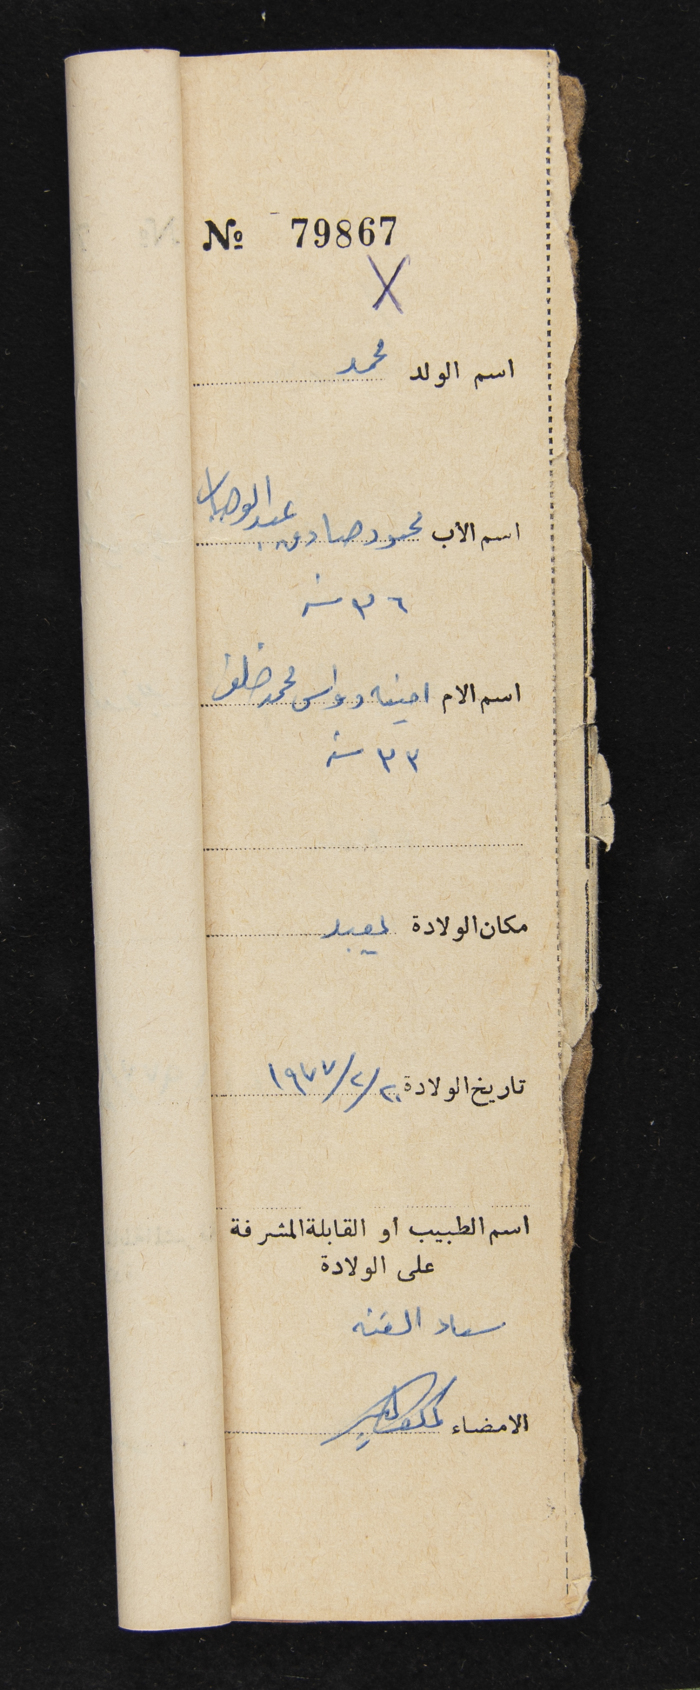 № 79867
X
اسم الولد محمد
اسم الأب محمود صادق عبد الوهاب
٣٦ سنة
اسم الام امينه دواس محمد خلف
٣٣ سنة
مكان الولادة يعبد
تاريخ الولادة ٢٠/٢/١٩٧٧
اسم الطبيب او القابلة المشرفة
على الولادة
سعاد
الامضاء